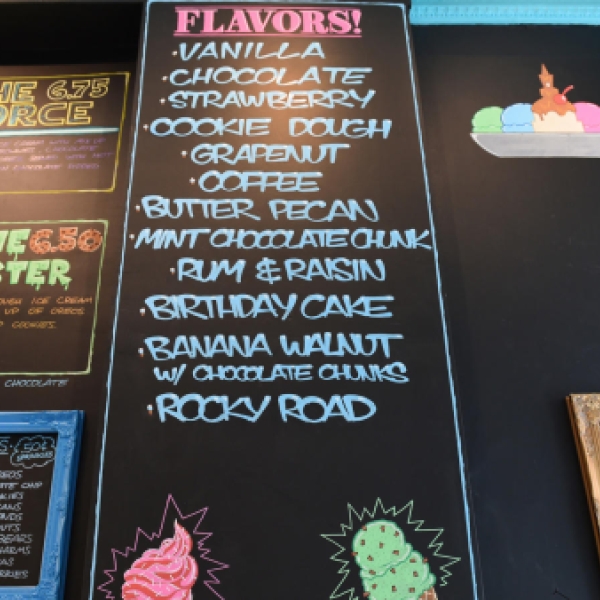 FLAVORS!
VANILLA
CHOCOLATE
STRAWBERRY
COOKIE DOUGH
GRAPENUT
COFFEE
BUTTER PECAN
MINT CHOCOLATE CHUNK
RUM & RAISIN
BIRTHDAY CAKE
BANANA WALNUT
W/ CHOCOLATE CHUNKS
ROCKY ROAD
HE 6.75
ORCE
6.50
STER
ICE CREAM
UP OF OREOS
COOKIES
CHOCOLATE
50¢
SPRINKLES